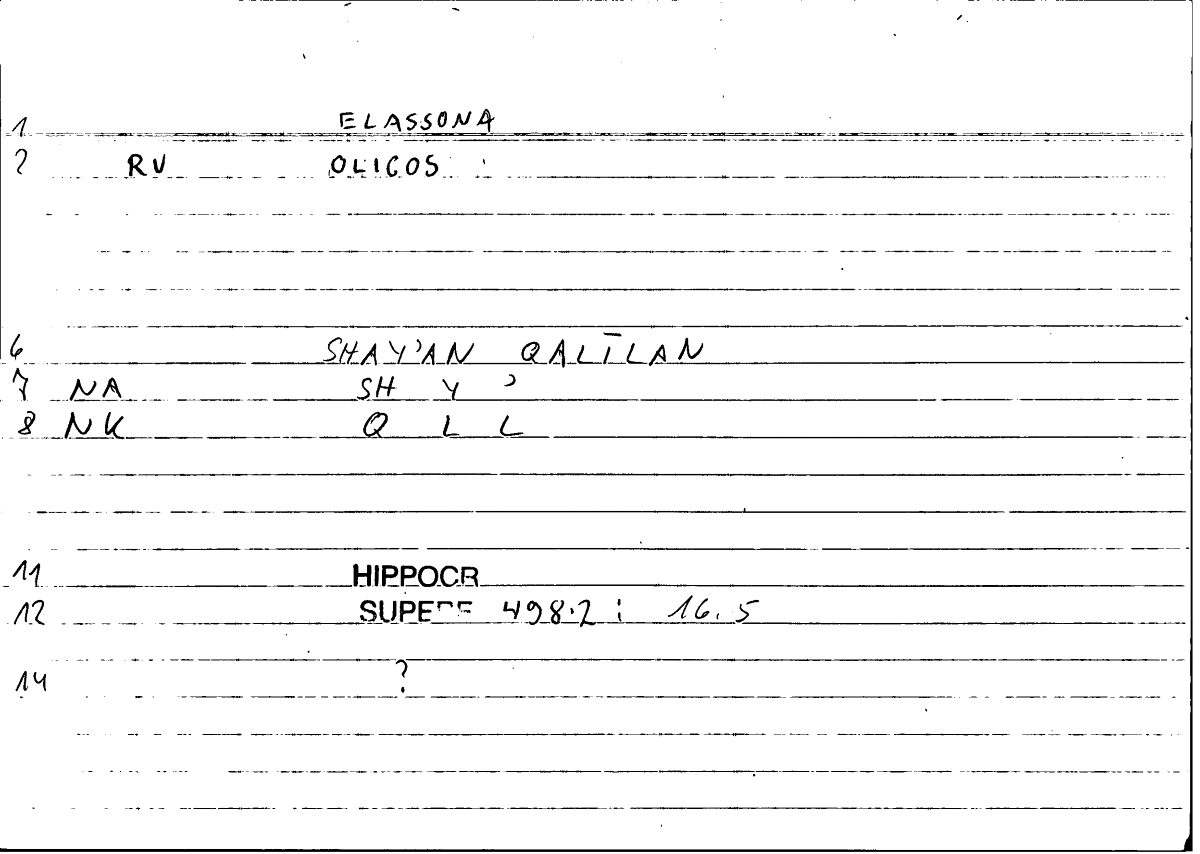 1 ELASSONA
2 RV OLIGOS :
6 SHAY'AN QALĪLAN
7 NA SH Y '
8 NK Q L L
11 HIPPOCR
12 498.2 : 16.5
14 ?